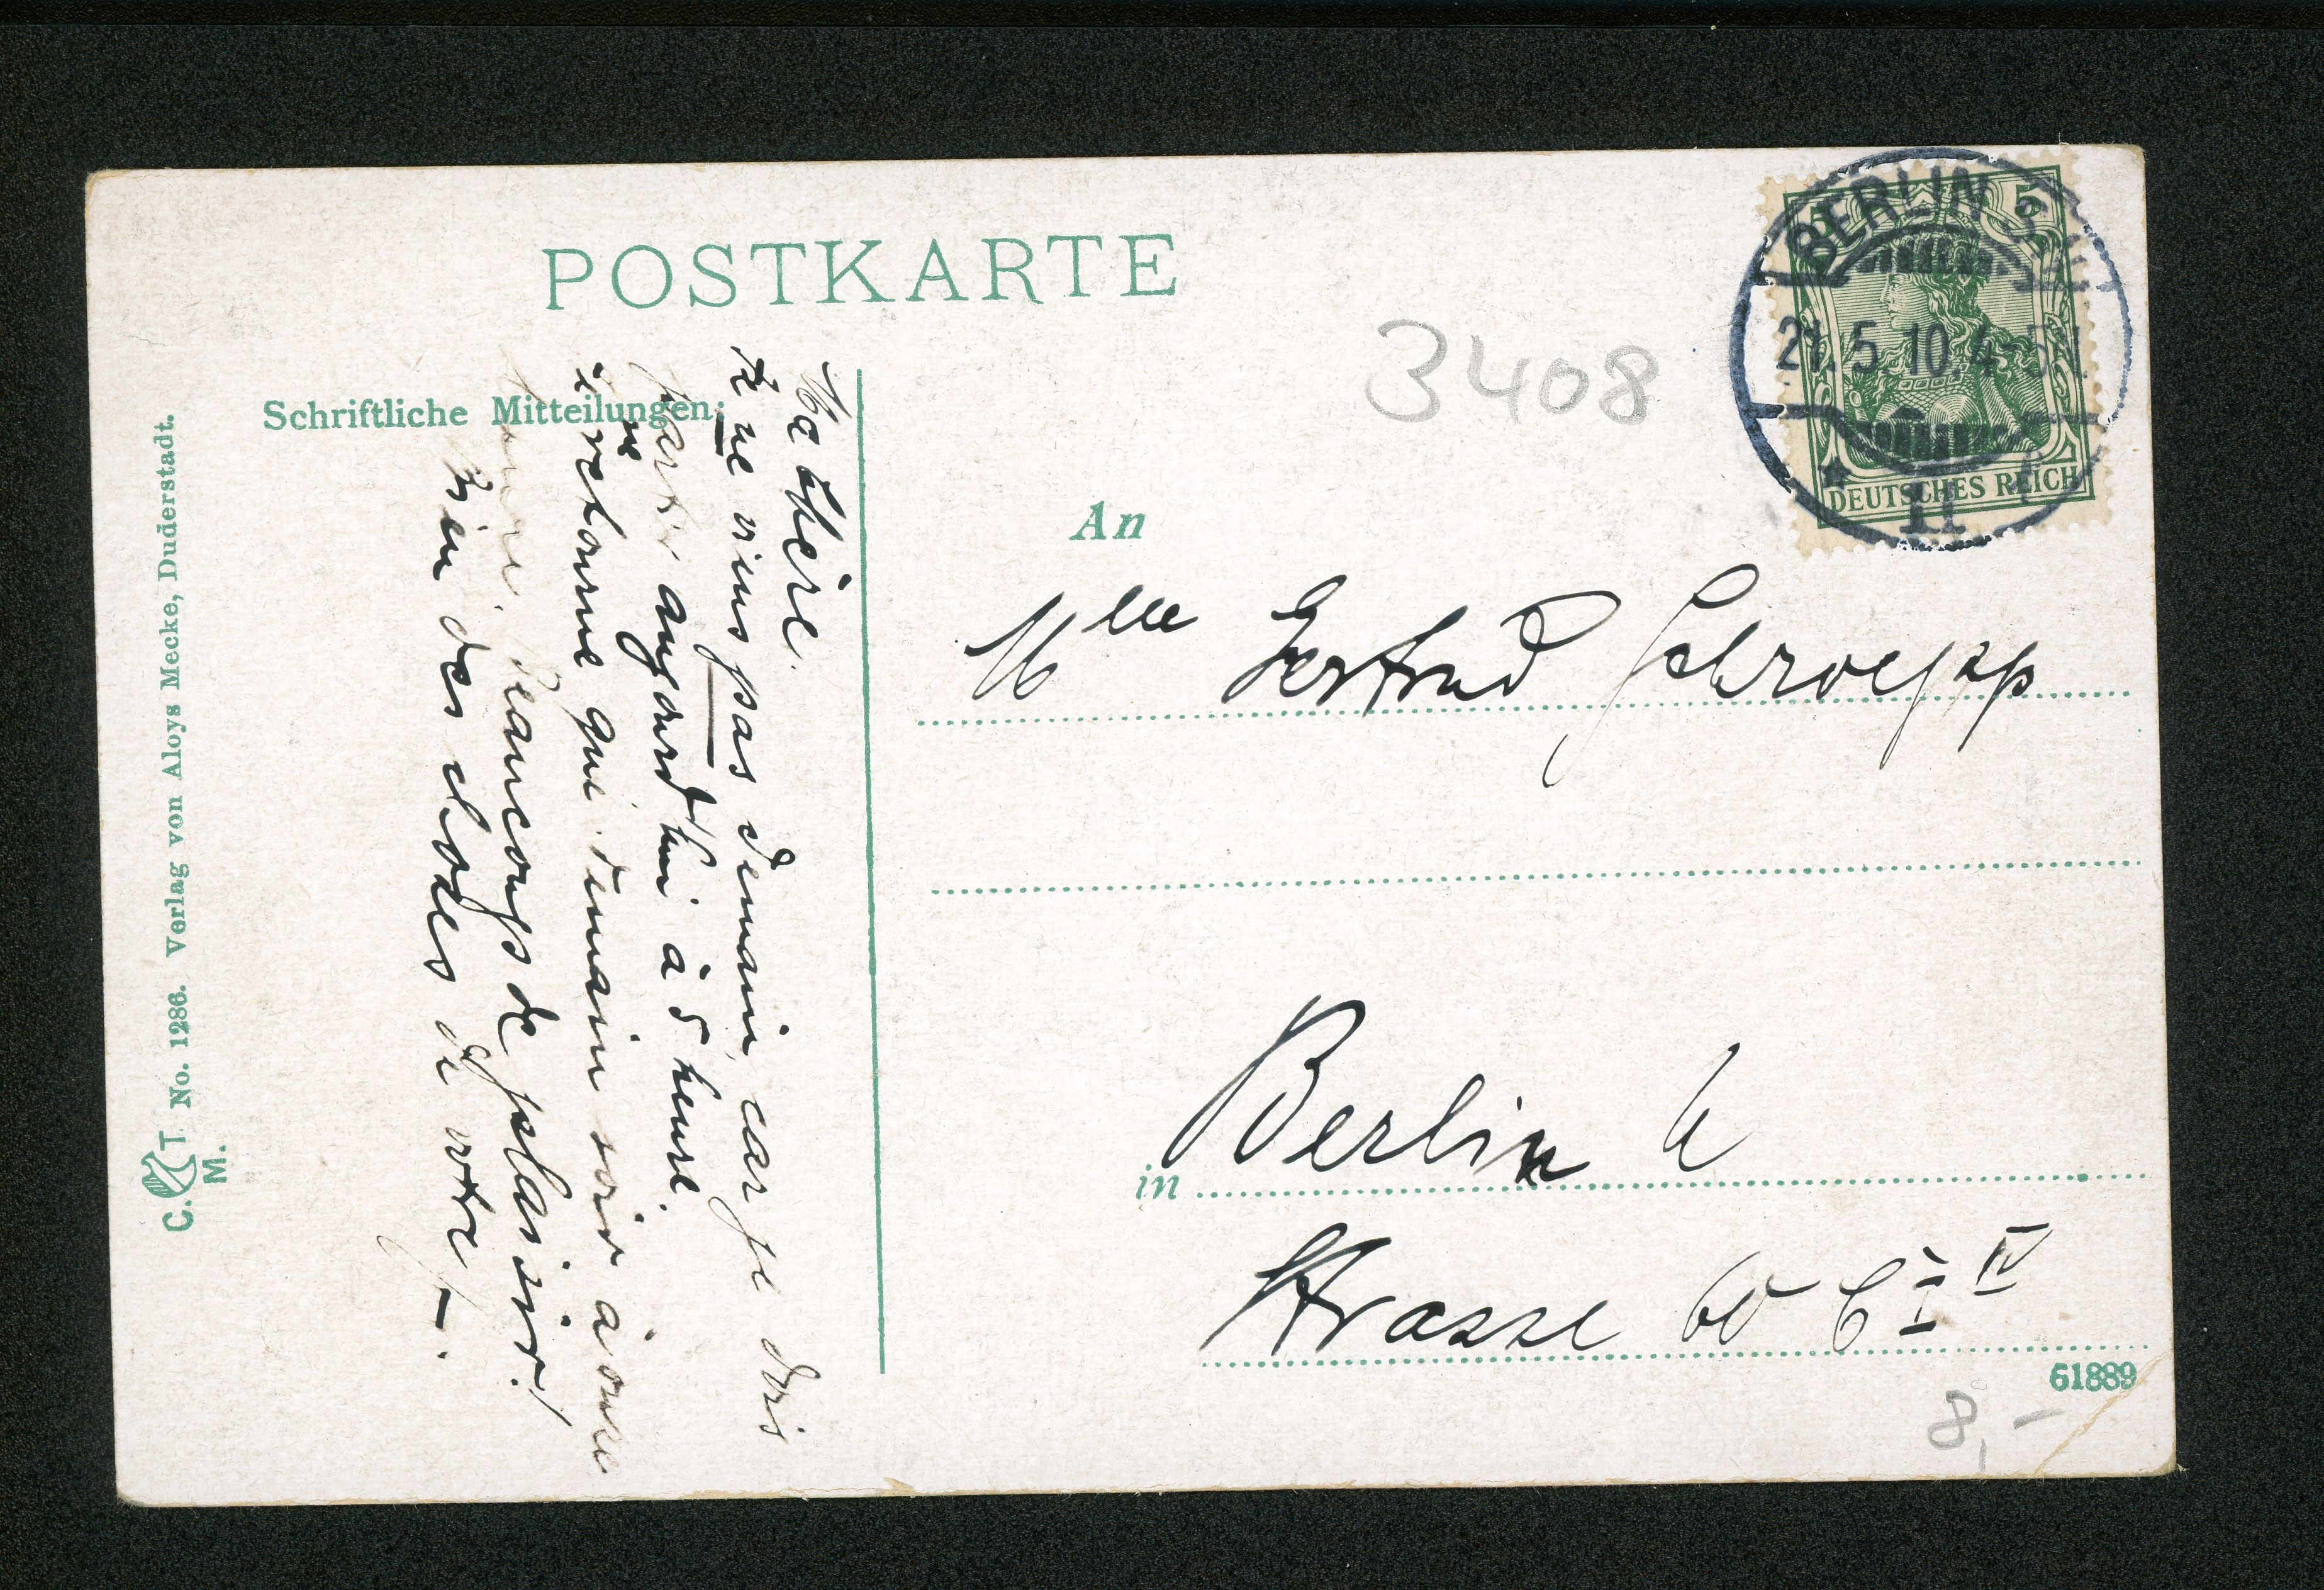 POSTKARTE
Schriftliche Mitteilungen:
Ma chère.
Ne viens pas demain, car je dois
partir aujourd'hui à 5 heure.
ne
retourne que demain soir à onze
heure. Beaucoup de plaisir!
Bien des choses de votre
An
Mlle Gertrud Schroepp
in Berlin W
Strasse 60 C I IV
BERLIN S.W.
21.5.10.4-5N.
* 11
5 5
DEUTSCHES REICH
3408
61889
8,-
C. T. M. No. 1286. Verlag von Aloys Mecke, Duderstadt.